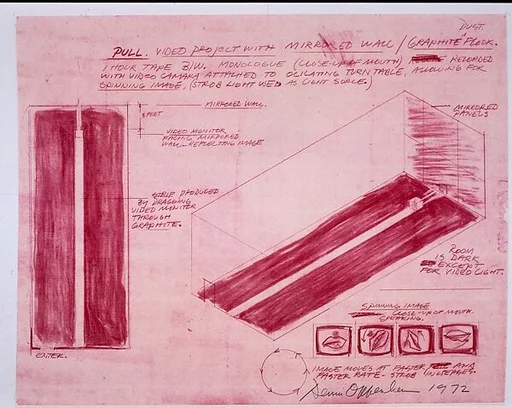 DUST.
PULL. VIDEO PROJECT WITH MIRRORED WALL / GRAPHITE FLOOR.
1 HOUR TAPE B/W. MONOLOGUE (CLOSE-UP OF MOUTH) RECORDED
WITH VIDEO CAMARA ATTACHED TO OCILATING TURNTABLE, ALLOWING FOR
SPINNING IMAGE, (STROB LIGHT USED AS LIGHT SORCE.)
MIRRORED WALL.
FEET
VIDEO MONITOR
FACING MIRRORED
WALL - REFLECTING IMAGE
MIRRORED
PANELS
STRIP PRODUCED
BY DRAGGING
VIDEO MONITOR
THROUGH
GRAPHITE.
ROOM
IS DARK
EXCEPT
FOR VIDEO LIGHT.
SPINNING IMAGE
CLOSE-UP OF MOUTH.
SPEAKING.
ENTER.
IMAGE MOVES AT FASTER AND
FASTER RATE - STROB
Dennis Oppenheim 1972